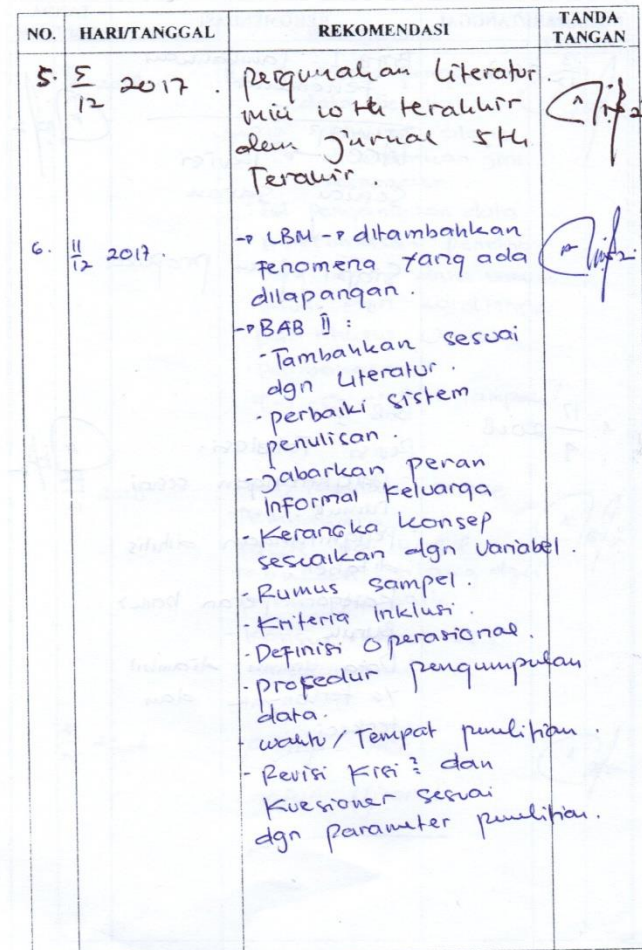 NO. HARI/TANGGAL REKOMENDASI TANDA TANGAN
5. 5/12 2017. pergunakan literatur
mini 10 th terakhir
dan jurnal 5 th
Terakhir.
6. 11/12 2017. → LBM → ditambahkan
fenomena yang ada
dilapangan.
→ BAB II :
- Tambahkan sesuai
dgn literatur.
- perbaiki sistem
penulisan.
- Jabarkan peran
informal keluarga
- Kerangka konsep
sesuaikan dgn variabel.
- Rumus sampel.
- Kriteria inklusi.
- Definisi operasional.
- profedur pengumpulan
data.
- waktu / Tempat penelitian.
- Revisi kisi² dan
kuesioner sesuai
dgn parameter penelitian.